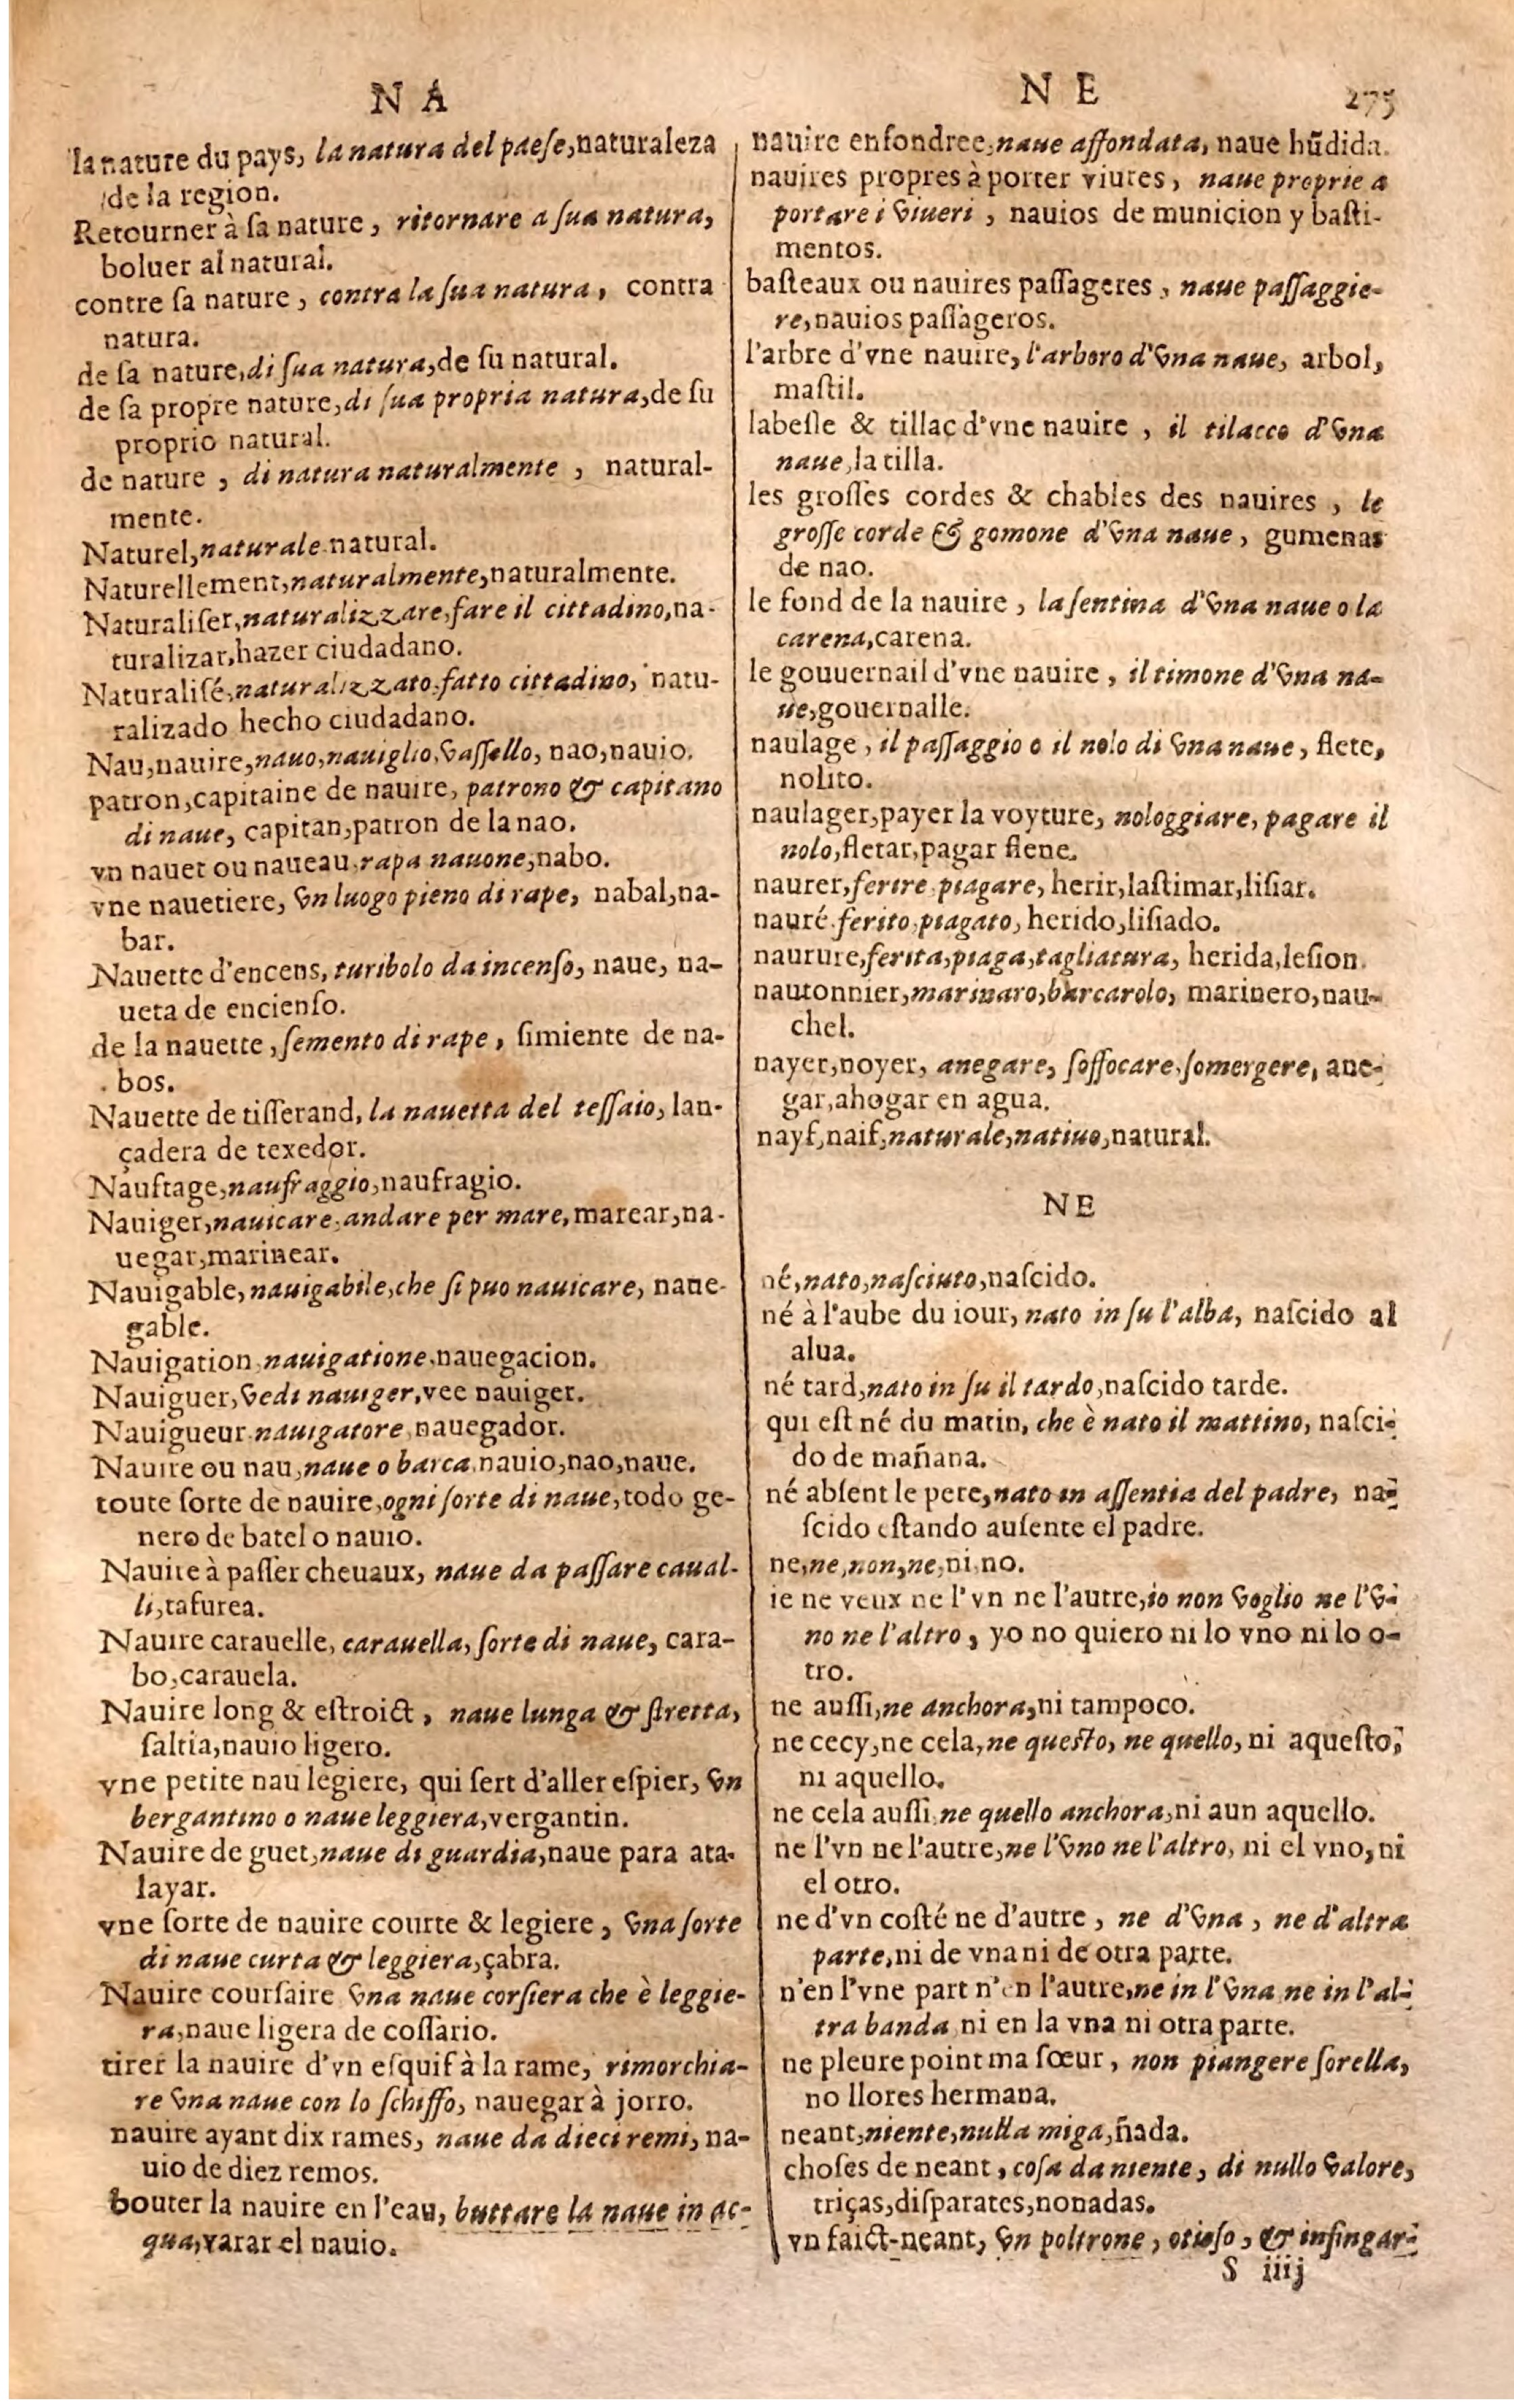 N A
la nature du pays, la natura del paeſe, naturaleza
de la region.
Retourner à ſa nature, ritornare a ſua natura,
boluer al natural.
contre ſa nature, contra la ſua natura, contra
natura.
de ſa nature, di ſua natura, de ſu natural.
de ſa propre nature, di ſua propria natura, de ſu
proprio natural.
de nature, di natura naturalmente, natural-
mente.
Naturel, naturale natural.
Naturellement, naturalmente, naturalmente.
Naturaliſer, naturalizzare, fare il cittadino, na-
turalizar, hazer ciudadano.
Naturaliſé, naturalizzato, fatto cittadino, natu-
ralizado hecho ciudadano.
Nau, nauire, nauo, nauiglio, vaſſello, nao, nauio.
patron, capitaine de nauire, patrono & capitano
di naue, capitan, patron de la nao.
vn nauet ou naueau, rapa nauone, nabo.
vne nauetiere, vn luogo pieno di rape, nabal, na-
bar.
Nauette d'encens, turibolo da incenſo, naue, na-
ueta de encienſo.
de la nauette, ſemento di rape, ſimiente de na-
bos.
Nauette de tiſſerand, la nauetta del teſſaio, lan-
çadera de texedor.
Naufrage, naufraggio, naufragio.
Nauiger, nauicare, andare per mare, marear, na-
uegar, marinear.
Nauigable, nauigabile, che ſi puo nauicare, naue-
gable.
Nauigation, nauigatione, nauegacion.
Nauiguer, vedi nauiger, vee nauiger.
Nauigueur nauigatore, nauegador.
Nauire ou nau, naue o barca, nauio, nao, naue.
toute ſorte de nauire, ogni ſorte di naue, todo ge-
nero de batel o nauio.
Nauire à paſſer cheuaux, naue da paſſare caual-
li, tafurea.
Nauire carauelle, carauella, ſorte di naue, cara-
bo, carauela.
Nauire long & eſtroict, naue lunga & ſtretta,
ſaltia, nauio ligero.
vne petite nau legiere, qui ſert d'aller eſpier, vn
bergantino o naue leggiera, vergantin.
Nauire de guet, naue di guardia, naue para ata-
layar.
vne ſorte de nauire courte & legiere, vna ſorte
di naue curta & leggiera, çabra.
Nauire courſaire vna naue corſiera che è leggie-
ra, naue ligera de coſſario.
tirer la nauire d'vn eſquif à la rame, rimorchia-
re vna naue con lo ſchiffo, nauegar à jorro.
nauire ayant dix rames, naue da dieci remi, na-
uio de diez remos.
bouter la nauire en l'eau, buttare la naue in ac-
qua, varar el nauio.
N E 275
nauire enfondree, naue affondata, naue hũdida.
nauires propres à porter viures, naue proprie a
portare i viueri, nauios de municion y baſti-
mentos.
baſteaux ou nauires paſſageres, naue paſſaggie-
re, nauios paſſageros.
l'arbre d'vne nauire, l'arboro d'vna naue, arbol,
maſtil.
labeſle & tillac d'vne nauire, il tilacco d'vna
naue, la tilla.
les groſſes cordes & chables des nauires, le
groſſe corde & gomone d'vna naue, gumenas
de nao.
le fond de la nauire, la ſentina d'vna naue o la
carena, carena.
le gouuernail d'vne nauire, il timone d'vna na-
ue, gouernalle.
naulage, il paſſaggio o il nolo di vna naue, flete,
nolito.
naulager, payer la voyture, nologgiare, pagare il
nolo, fletar, pagar flene.
naurer, ferire piagare, herir, laſtimar, liſiar.
nauré ferito, piagato, herido, liſiado.
naurure, ferita, piaga, tagliatura, herida, leſion.
nautonnier, marinaro, barcarolo, marinero, nau-
chel.
nayer, noyer, anegare, ſoffocare, ſomergere, ane-
gar, ahogar en agua.
nayf, naif, naturale, natiuo, natural.
NE
né, nato, naſciuto, naſcido.
né à l'aube du iour, nato in ſu l'alba, naſcido al
alua.
né tard, nato in ſu il tardo, naſcido tarde.
qui eſt né du matin, che è nato il mattino, naſci-
do de mañana.
né abſent le pere, nato in aſſentia del padre, na-
ſcido eſtando auſente el padre.
ne, ne, non, ne, ni, no.
ie ne veux ne l'vn ne l'autre, io non voglio ne l'v-
no ne l'altro, yo no quiero ni lo vno ni lo o-
tro.
ne auſſi, ne anchora, ni tampoco.
ne cecy, ne cela, ne queſto, ne quello, ni aqueſto,
ni aquello.
ne cela auſſi, ne quello anchora, ni aun aquello.
ne l'vn ne l'autre, ne l'vno ne l'altro, ni el vno, ni
el otro.
ne d'vn coſté ne d'autre, ne d'vna, ne d'altra
parte, ni de vna ni de otra parte.
n'en l'vne part n'en l'autre, ne in l'vna ne in l'al-
tra banda ni en la vna ni otra parte.
ne pleure point ma sœur, non piangere ſorella,
no llores hermana.
neant, niente, nulla miga, ñada.
choſes de neant, coſa da niente, di nullo valore,
triças, diſparates, nonadas.
vn faict-neant, vn poltrone, otioſo, & inſingar-
S iiij